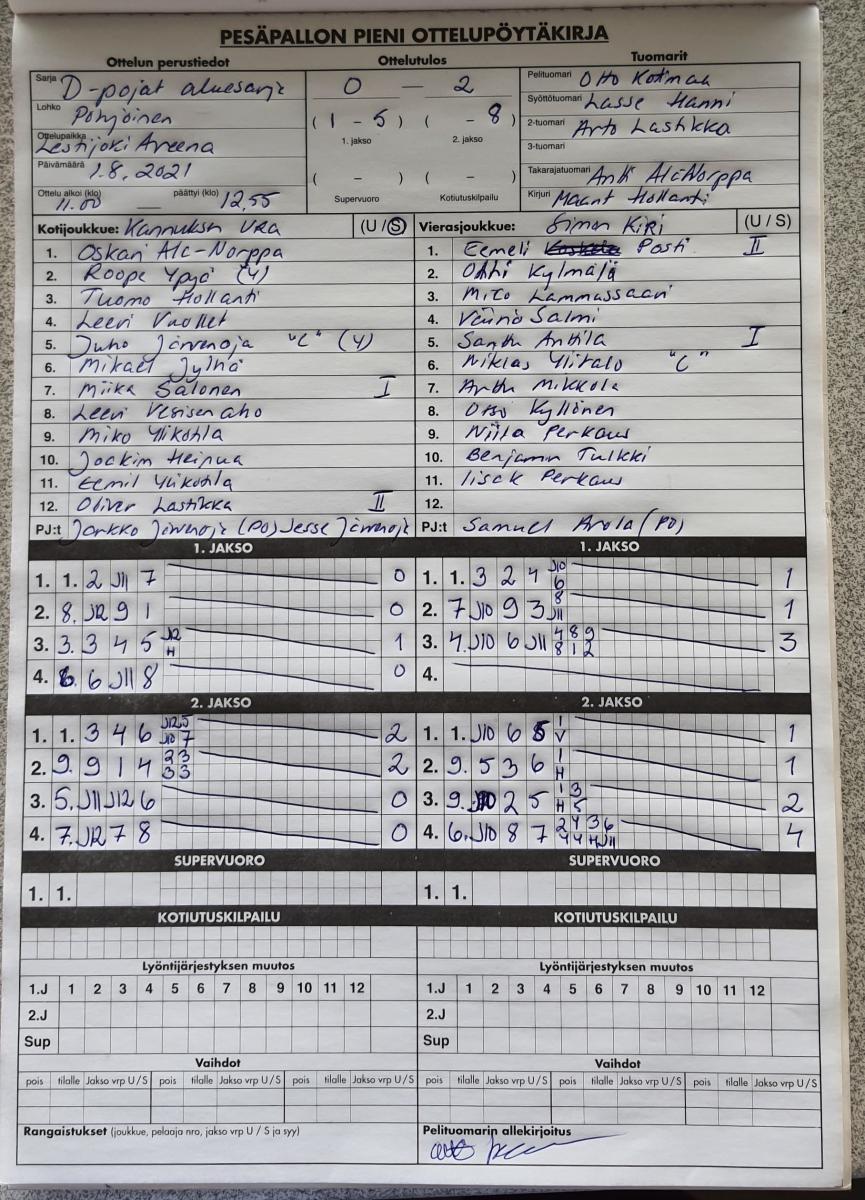 PESÄPALLON PIENI OTTELUPÖYTÄKIRJA
Ottelun perustiedot Ottelutulos Tuomarit
Sarja D-pojat aluesarja 0 — 2 Pelituomari Otto Kotimaa
Lohko Pohjoinen (1 - 5) ( - 8) Syöttötuomari Lasse Hanni
1. jakso 2. jakso 2-tuomari Arto Lastikka
Ottelupaikka Lestijoki Areena 3-tuomari
Päivämäärä 1.8.2021 ( - ) ( - ) Takarajatuomari Antti Ala-Norppa
Ottelu alkoi (klo) 11.00 — päättyi (klo) 12.55 Supervuoro Kotiutuskilpailu Kirjuri Maarit Hollanti
Kotijoukkue: Kannuksen Ura (U / S) Vierasjoukkue: Simon Kiri (U / S)
1. Oskari Ala-Norppa 1. Eemeli Posti II
2. Roope Ypyä (Y) 2. Ohti Kylmälä
3. Tuomo Hollanti 3. Mico Lammassaari
4. Leevi Vuollet 4. Väinö Salmi
5. Juho Järvenoja "C" (Y) 5. Santtu Anttila I
6. Mikael Jylhä 6. Niklas Ylitalo "C"
7. Miika Salonen I 7. Arttu Mikkola
8. Leevi Vesisenaho 8. Otso Kyllönen
9. Miko Ylikohla 9. Niila Perkaus
10. Joakim Heinua 10. Benjamin Tulkki
11. Eemil Ylikohla 11. Iisak Perkaus
12. Oliver Lastikka II 12.
PJ:t Jarkko Järvenoja (PO) Jesse Järvenoja PJ:t Samuel Arola (PO)
1. JAKSO 1. JAKSO
1. 1. 2 J11 7 0 1. 1. 3 2 4 J10 6 1
2. 8. J12 9 1 0 2. 7 J10 9 3 8 J11 1
3. 3. 3 4 5 J12 H 1 3. 4. J10 6 J11 4 8 9 8 1 2 3
4. 6. 6 J11 8 0 4.
2. JAKSO 2. JAKSO
1. 1. 3 4 6 J12 5 J10 7 2 1. 1. J10 6 5 1 V 1
2. 9. 9 1 4 2 3 3 3 2 2. 9. 5 3 6 1 H 1
3. 5. J11 J12 6 0 3. 9. J10 2 5 1 3 H 5 2
4. 7. J12 7 8 0 4. 6. J10 8 7 2 4 3 6 4 4 H J11 4
SUPERVUORO SUPERVUORO
1. 1. 1. 1.
KOTIUTUSKILPAILU KOTIUTUSKILPAILU
Lyöntijärjestyksen muutos Lyöntijärjestyksen muutos
1.J 1 2 3 4 5 6 7 8 9 10 11 12 1.J 1 2 3 4 5 6 7 8 9 10 11 12
2.J 2.J
Sup Sup
Vaihdot Vaihdot
pois tilalle Jakso vrp U / S pois tilalle Jakso vrp U / S pois tilalle Jakso vrp U / S pois tilalle Jakso vrp U / S pois tilalle Jakso vrp U / S pois tilalle Jakso vrp U / S
Rangaistukset (joukkue, pelaaja nro, jakso vrp U / S ja syy) Pelituomarin allekirjoitus